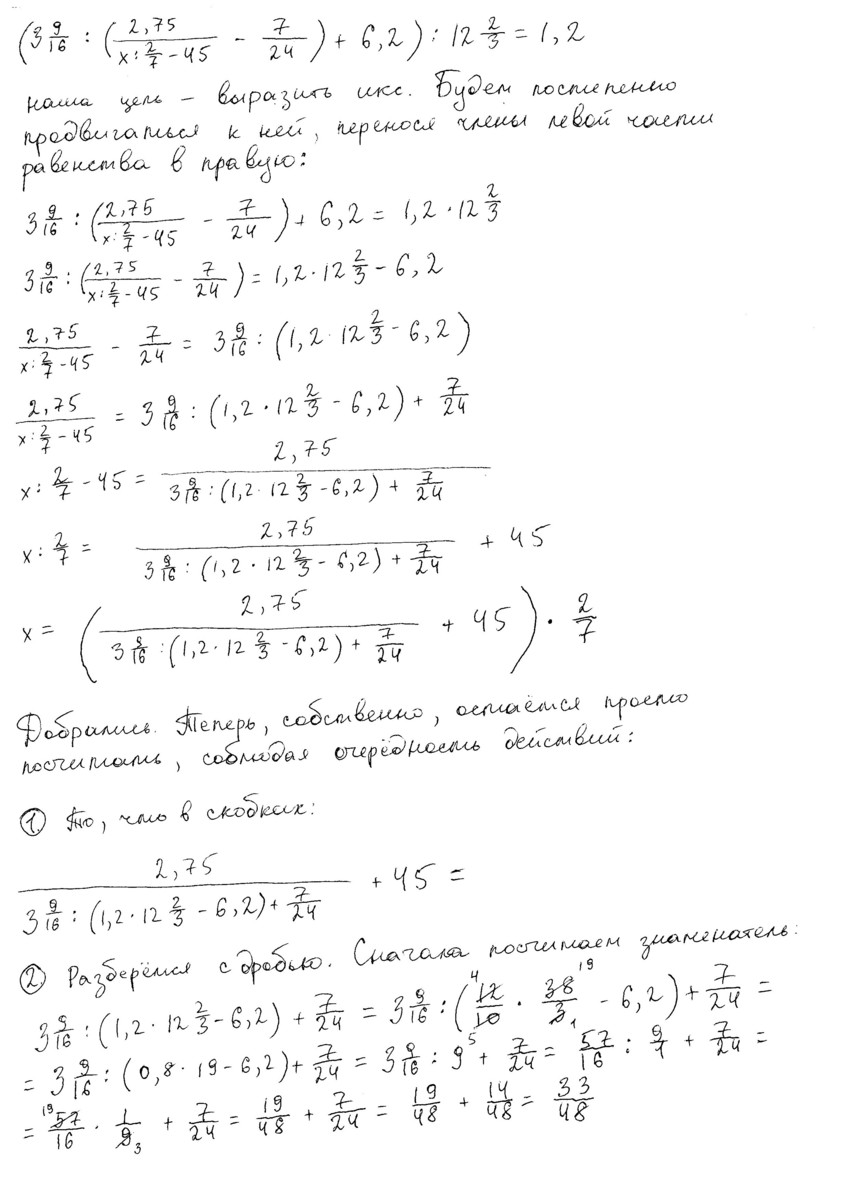 (3 9/16 : (2,75/(x : 2/7 - 45) - 7/24) + 6,2) : 12 2/3 = 1,2
наша цель – выразить икс. Будем постепенно
продвигаться к ней, перенося члены левой части
равенства в правую:
3 9/16 : (2,75/(x : 2/7 - 45) - 7/24) + 6,2 = 1,2 · 12 2/3
3 9/16 : (2,75/(x : 2/7 - 45) - 7/24) = 1,2 · 12 2/3 - 6,2
2,75/(x : 2/7 - 45) - 7/24 = 3 9/16 : (1,2 · 12 2/3 - 6,2)
2,75/(x : 2/7 - 45) = 3 9/16 : (1,2 · 12 2/3 - 6,2) + 7/24
x : 2/7 - 45 = 2,75/(3 9/16 : (1,2 · 12 2/3 - 6,2) + 7/24)
x : 2/7 = 2,75/(3 9/16 : (1,2 · 12 2/3 - 6,2) + 7/24) + 45
x = (2,75/(3 9/16 : (1,2 · 12 2/3 - 6,2) + 7/24) + 45) · 2/7
Добрались. Теперь, собственно, остаётся просто
посчитать, соблюдая очерёдность действий:
1. То, что в скобках:
2,75/(3 9/16 : (1,2 · 12 2/3 - 6,2) + 7/24) + 45 =
2 Разберёмся с дробью. Сначала посчитаем знаменатель:
3 9/16 : (1,2 · 12 2/3 - 6,2) + 7/24 = 3 9/16 : (4 12/10 5 · 38 19/3 1 - 6,2) + 7/24 =
= 3 9/16 : (0,8 · 19 - 6,2) + 7/24 = 3 9/16 : 9 + 7/24 = 57/16 : 9/1 + 7/24 =
= 19 57/16 · 1/9 3 + 7/24 = 19/48 + 7/24 = 19/48 + 14/48 = 33/48